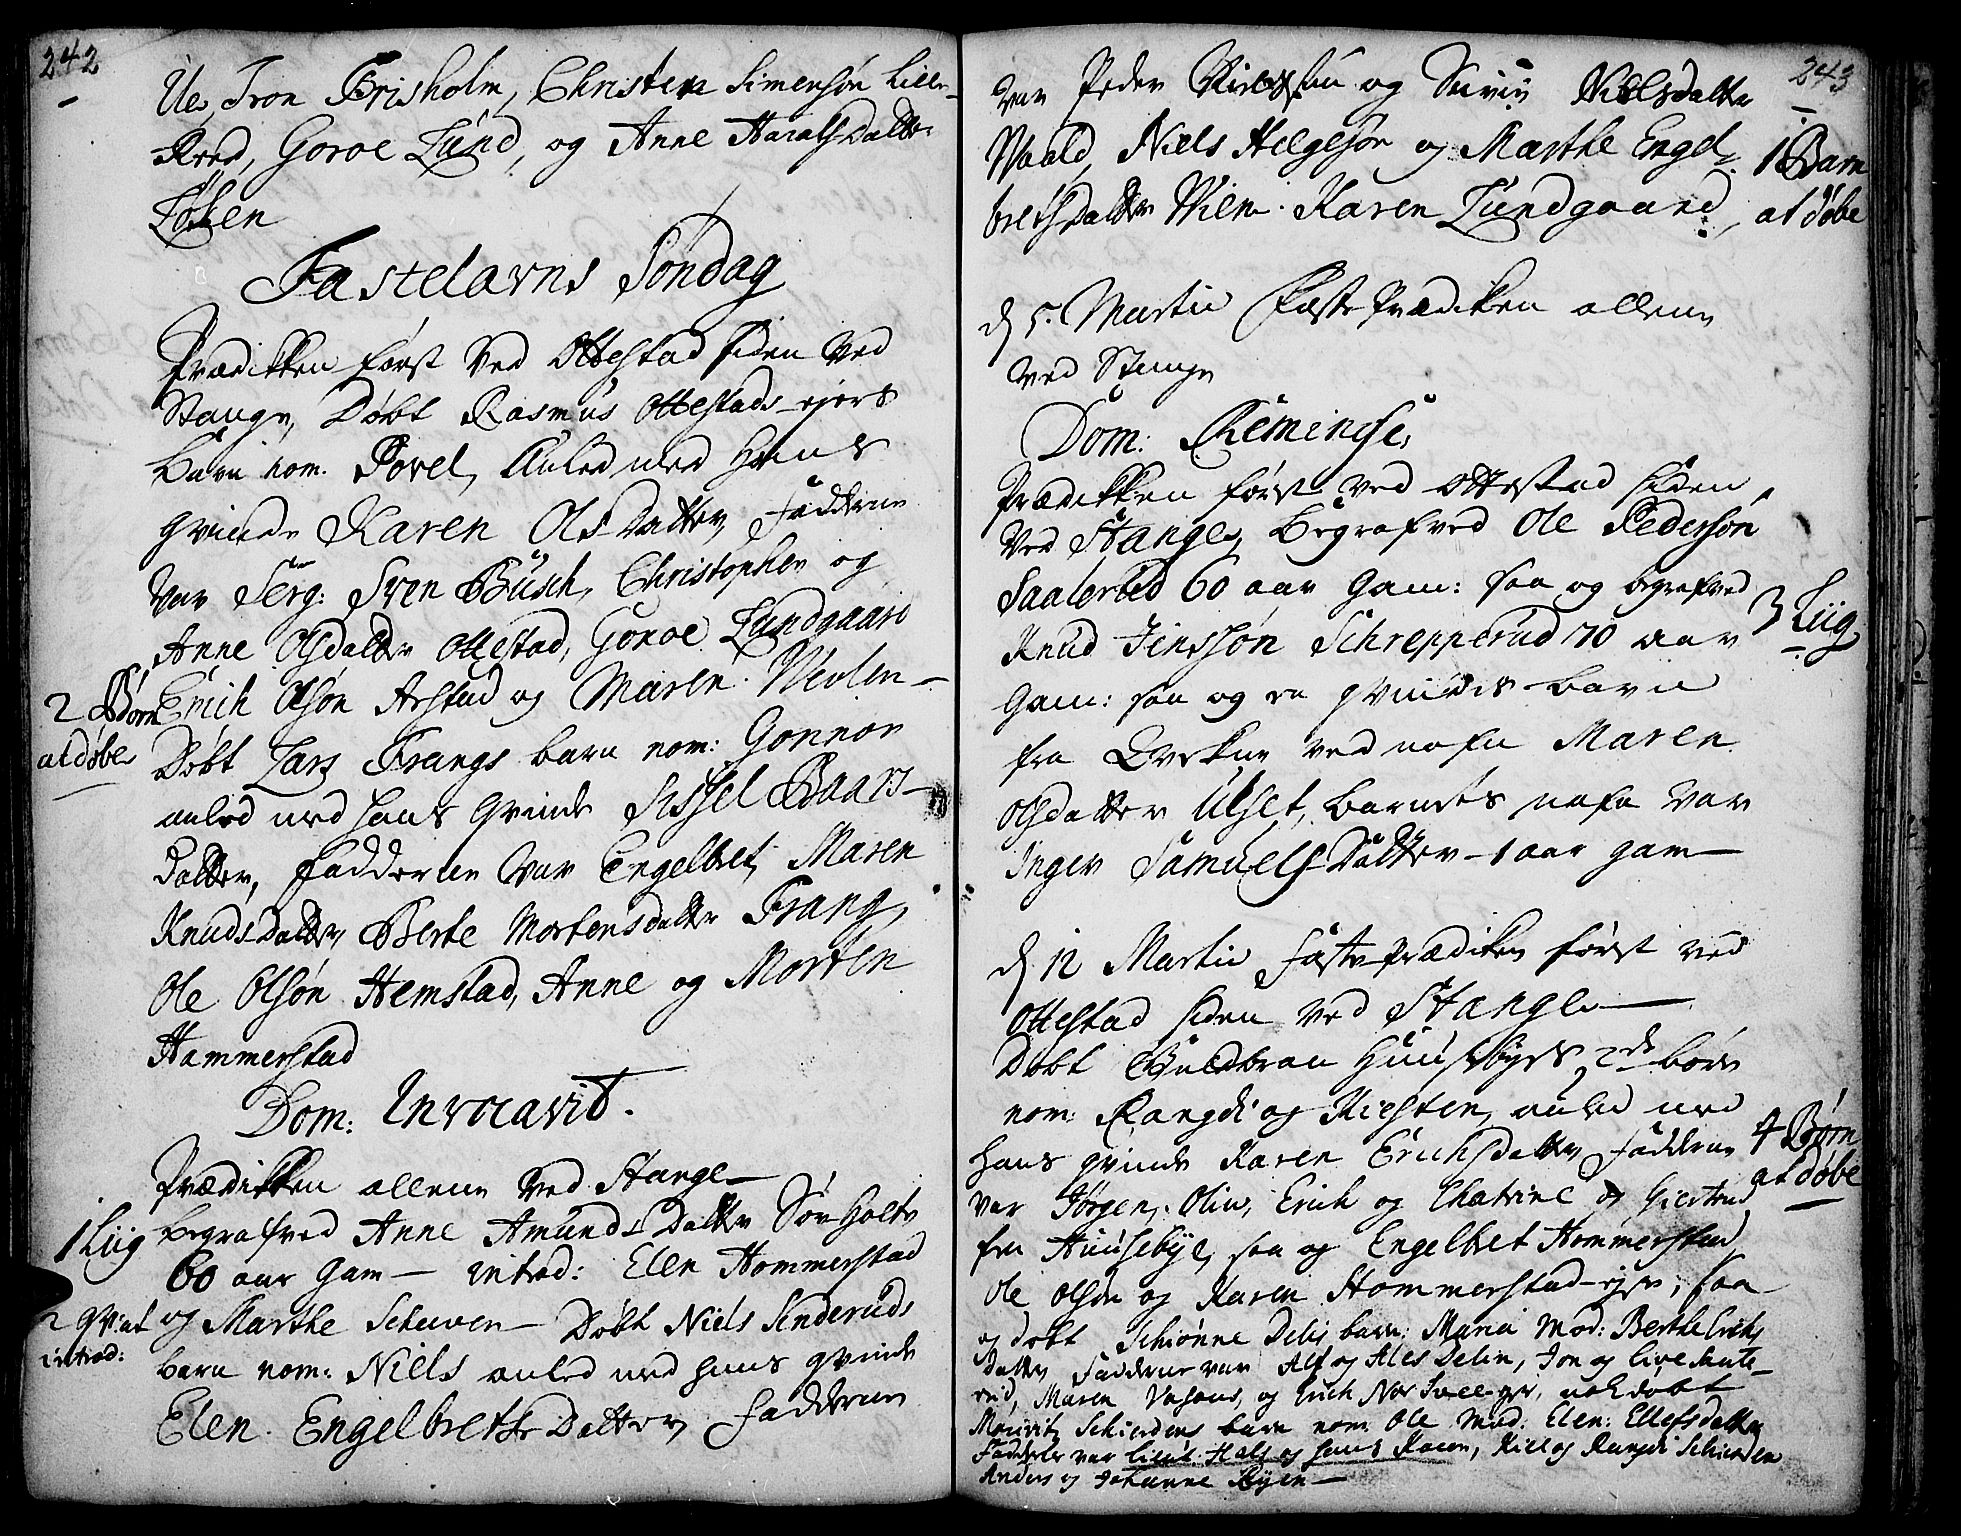 242
Ue, Iron Frisholm, Christen Simensøn Lille-
Røed, Goroe Lund, og Anne HaralsDatter
Løken
Fastelavns Søndag
Prædikken først ved Ottestad siden ved
Stange, Døbt Rasmus Ottestads-ejers
barn nom. Povel, Auled med Hans
qvinde Karen OlsDatter, Fadderne
var Serg: Sven Busch, Christopher og
Anne Olsdatter Ottestad, Goroe Lundgaard
Erich Olsøn Arstad og Maren
2 Børn
at døbe
Døbt Lars Frangs barn nom: Gonnor
auled med hans qvinde Sissel Baars-
Datter, Fadderne var Engelbret, Maren
KnudsDatter, Berte Mortensdatter Frang,
Ole Olsøn Hemstad, Anne og Morten
Hammerstad
Dom: Invocavit.
Prædikken allene ved Stange
1 Liig
begrafved Anne AmundsDatter Sørholte
60 aar Gam— introd: Elen Hommerstad
2 qvi: at
introd:
og Marthe Scheeven— Døbt Niels Sinderuds
barn nom: Niels auled med hans qvinde
Elen EngelbrethsDatter, Fadderne
243
var Peder og Nielsdatter
Vaald, Niels Helgesøn og Marthe Engel-
brethsDatter Karen Lundgaard,
1 Barn
at døbe
d 5. Martii FastePrædiken allene
ved Stange
Dom: Reminise:
Prædikken først ved Ottestad siden
ved Stange, Begrafved Ole Pedersøn
Saalerud 60 aar Gam: saa og begrafved
Knud Jenssøn Schrepperud 70 aar
3 Liig
Gam: saa og en qvindis barn
fra ved nafn Maren
Olsdatter Ulset, barnets nafn var
Inger SamuelsDatter - 1 aar gam—
d. 12 Martii Fasteprædiken først ved
Ottestad siden ved Stange—
Døbt Guldbran Huusebyes 2de børn
nom: Rangdi og Kiersten, auled med
hans qvinde Karen ErichsDatter, Fadderne
4 Børn
at døbe
var Jørgen, Oliv, Erich og Chatrine og Giertrud
fra Huusebye, saa og Engelbret Hommerstad,
Ole Olsøn og Karen Hommerstad-ejer, saa
og døbt Schiønne Delis barn: Maria Mod: Berthe Erichs
Datter Fadderne var Alf og Ales Delin, Jon og Live
Maren og Erich Nor ejer, nok døbt
Mouritz Schierdens barn nom: Ole Mod: Elen: EllefsDatter
Fadderne var Lieut: Hals og hans Kone, og Rangdi Schierden
Anders og Johanne Ryen—